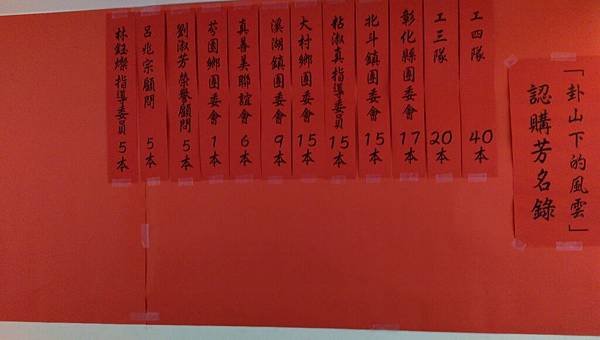 「卦山下的風雲」
認購芳名錄
工四隊 40本
工三隊 20本
彰化縣團委會 17本
北斗鎮團委會 15本
粘淑真指導委員 15本
大村鄉團委會 15本
溪湖鎮團委會 9本
真善美聯誼會 6本
芬園鄉團委會 1本
劉淑芳榮譽顧問 5本
呂兆宗顧問 5本
林鈺燦指導委員 5本